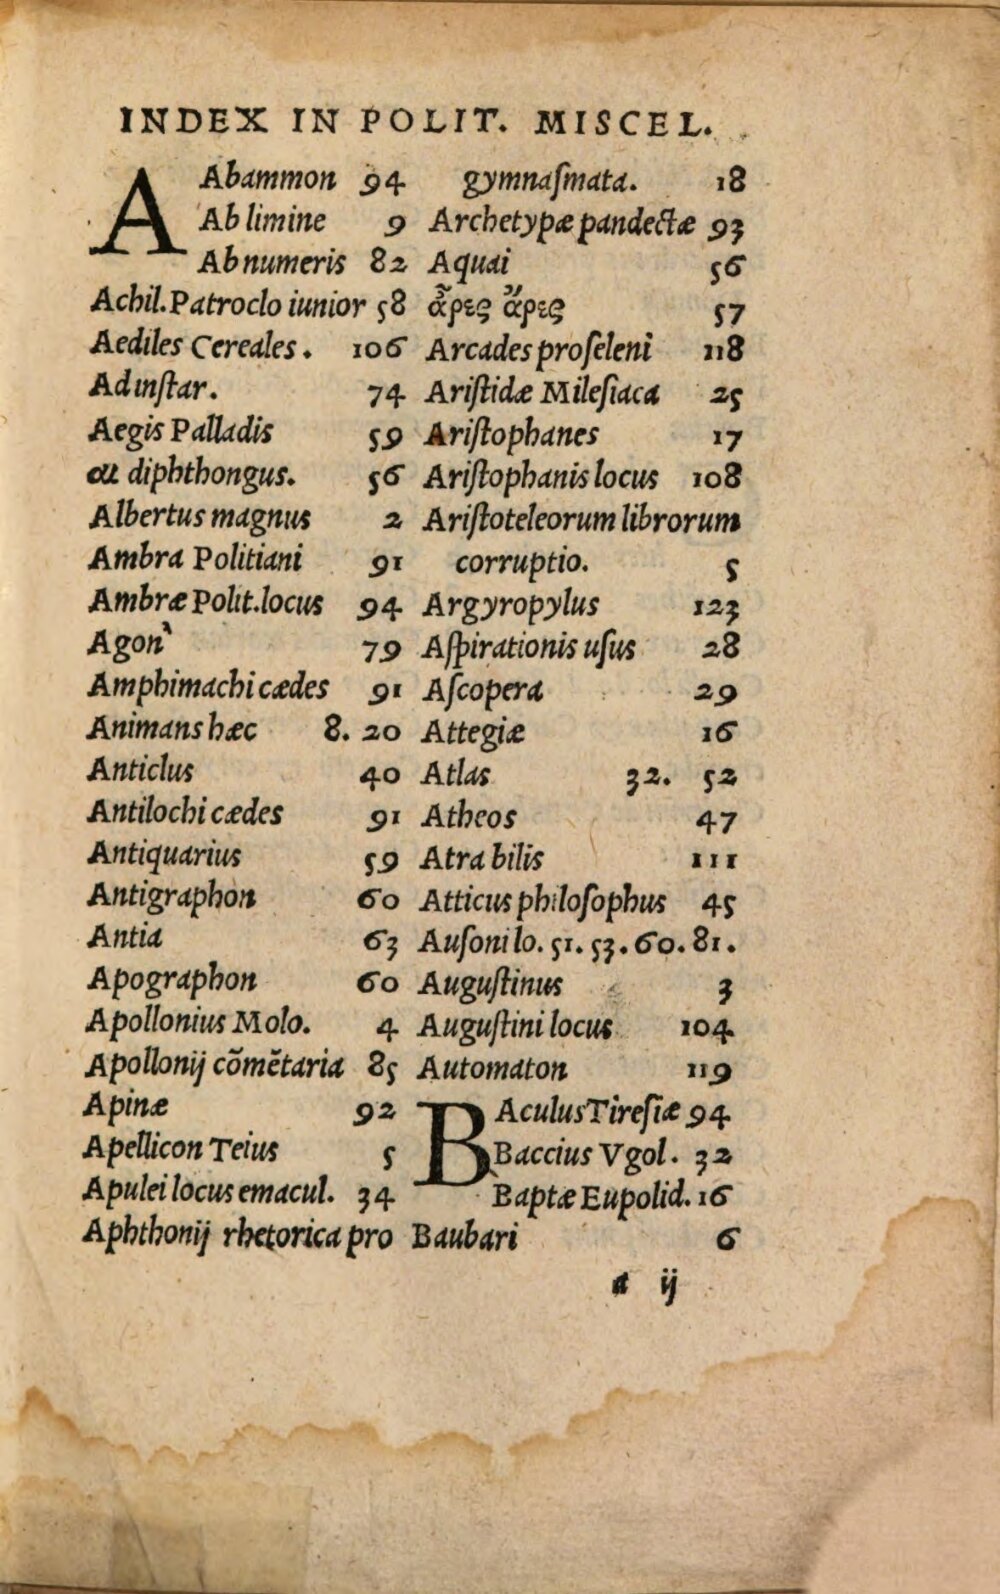 INDEX IN POLIT. MISCEL.
AAbammon 94
Ab limine 9
Ab numeris 82
Achil. Patroclo iunior 58
Aediles Cereales. 106
Ad inſtar. 74
Aegis Palladis 59
αι diphthongus. 56
Albertus magnus 2
Ambra Politiani 91
Ambræ Polit. locus 94
Agon 79
Amphimachi cædes 91
Animans hæc 8. 20
Anticlus 40
Antilochi cædes 91
Antiquarius 59
Antigraphon 60
Antia 63
Apographon 60
Apollonius Molo. 4
Apollonij cõmẽtaria 85
Apinæ 92
Apellicon Teius 5
Apulei locus emacul. 34
Aphthonij rhetorica pro
gymnaſmata. 18
Archetypæ pandectæ 93
Aquai 56
ἆρες ἄρες 57
Arcades proſeleni 118
Ariſtidæ Mileſiaca 25
Ariſtophanes 17
Ariſtophanis locus 108
Ariſtoteleorum librorum
corruptio. 5
Argyropylus 123
Aſpirationis uſus 28
Aſcopera 29
Attegiæ 16
Atlas 32. 52
Atheos 47
Atra bilis 111
Atticus philoſophus 45
Auſoni lo. 51. 53. 60. 81.
Auguſtinus 3
Auguſtini locus 104
Automaton 119
BAculus Tireſiæ 94
Baccius Vgol. 32
Baptæ Eupolid. 16
Baubari 6
a ij